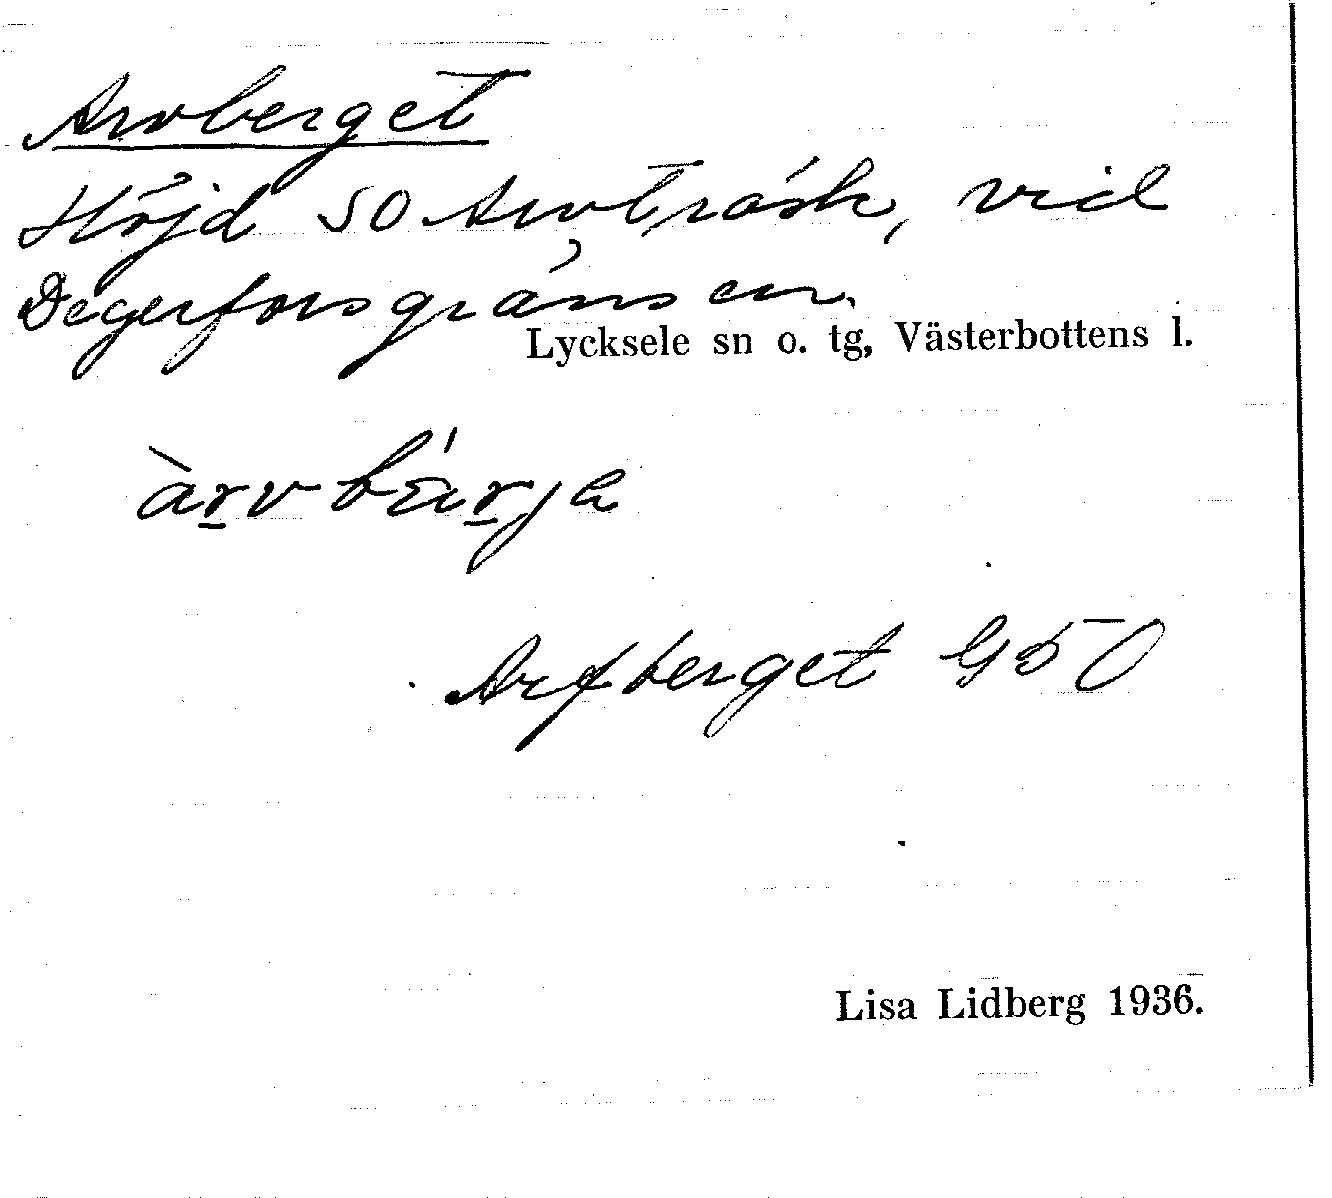 Arvberget
Höjd SO Arvträsk, vid
Degerforsgränsen.
Lycksele sn o. tg, Västerbottens l.
Arfberget G50
Lisa Lidberg 1936.